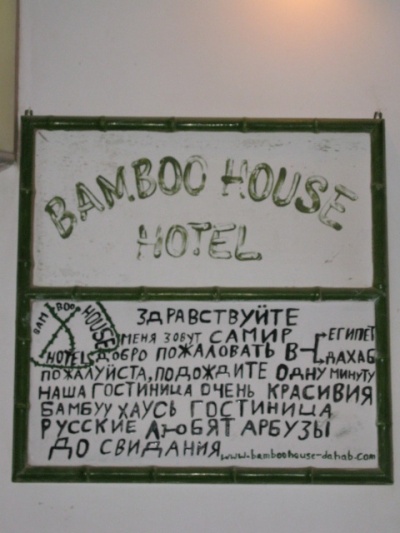 BAMBOO HOUSE
HOTEL
BAMBOO HOUSE
HOTELS
ЗДРАВСТВУЙТЕ
МЕНЯ ЗОВУТ САМИР
ДОБРО ПОЖАЛОВАТЬ В ЕГИПЕТ
ДАХАБ
ПОЖАЛУЙСТА, ПОДОЖДИТЕ ОДНУ МИНУТУ
НАША ГОСТИНИЦА ОЧЕНЬ КРАСИВИЯ
БАМБУУ ХАУСЬ ГОСТИНИЦА
РУССКИЕ ЛЮБЯТ АРБУЗЫ
ДО СВИДАНИЯ
www.bamboohouse-dahab.com